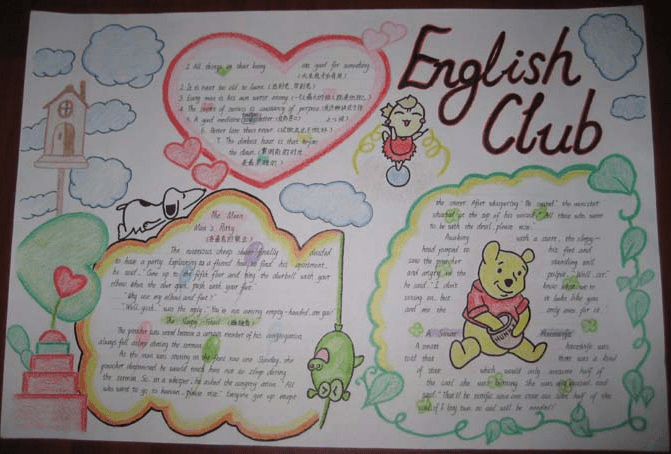 English
Club
1. All things in their being are good for something.
(天生我才必有用)
2. It is never too old to learn. (活到老,学到老)
3. Every man is his own worst enemy. (一个人最大的敌人就是他自己)
4. The secret of success is constancy of purpose.
5. A good medicine tastes bitter
6. Better late than never.
7. The darkest hour is that before
the dawn. (黎明前的时分
是最黑暗的)
The Mean
Man's Party
The notorious cheap skate finally decided
to have a party. Explaining to a friend how to find his apartment,
he said, "Come up to the fifth floor and ring the doorbell with your
elbow. When the door opens, push with your foot."
"Why use my elbow and foot?"
"Well, gosh," was the reply, "You're not coming empty-handed, are you?"
The Sleepy
The preacher was vexed because a certain member of his congregation
always fell asleep during the sermon.
As the man was snoring in the front row one Sunday, the
preacher determined he would teach him not to sleep during
the sermon. So, in a whisper, he asked the congregation, "All
who want to go to heaven, please rise." Everyone got up except
the snorer. After whispering "Be seated", the minister
shouted at the top of his voice, "All those who want
to be with the devil, please rise."
Awaking with a start, the sleepy-
head jumped to his feet and
saw the preacher standing tall
and angry in the pulpit. "Well, sir,"
he said, "I don't know what we're
voting on, but it looks like you
and me are the only ones for it."
A Smart Housewife
A smart housewife was
told that there was a kind
of stove which would only consume half of
the coal she was burning. She was very excited, and
said, "That'll be terrific! Since one stove can save half of the
coal, if I buy two, no coal will be needed!"
HUNNY